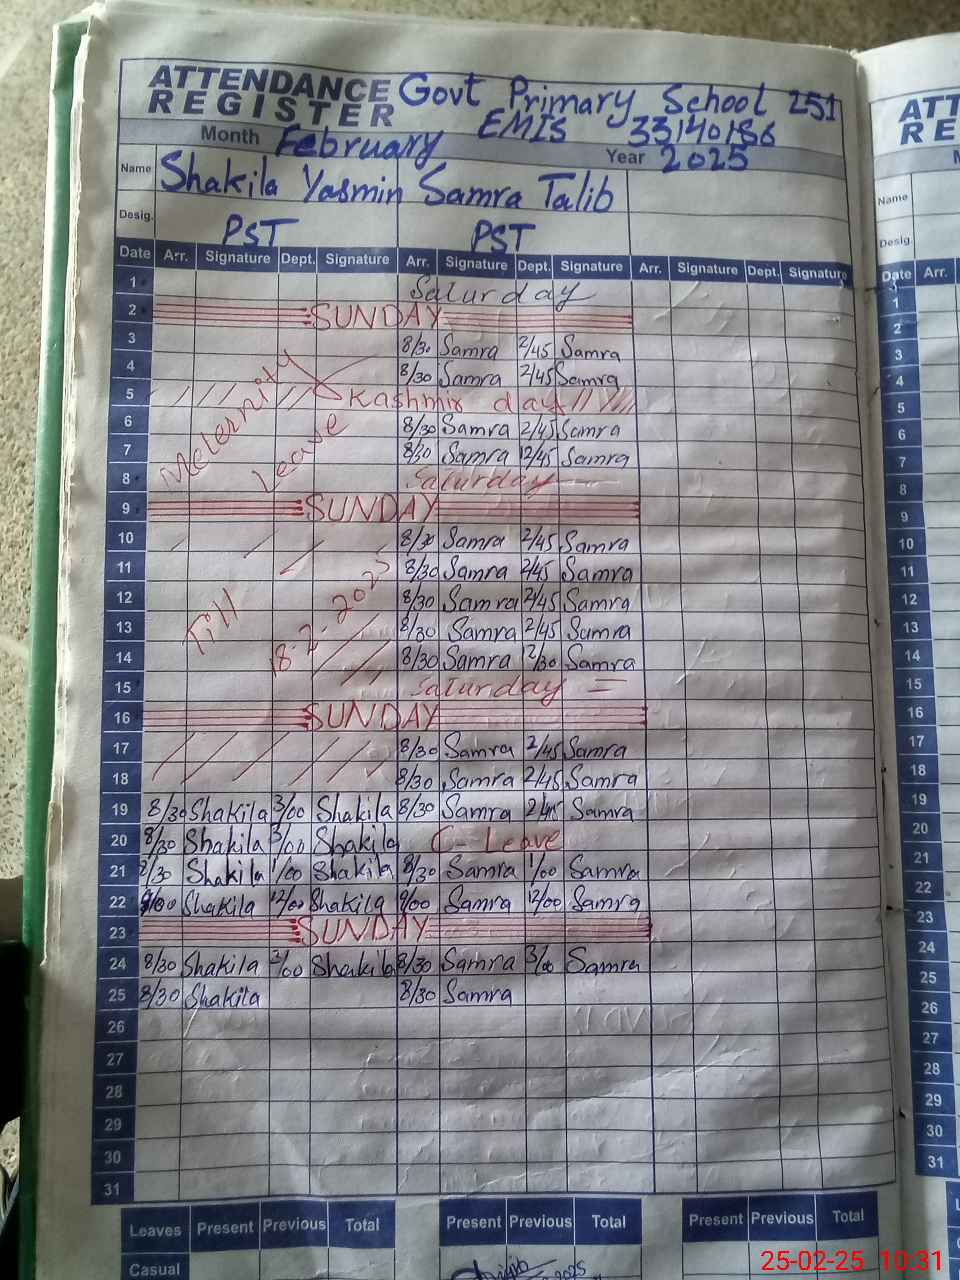 ATTENDANCE REGISTER Govt Primary School 251
EMIS 33140186
Month February Year 2025
Name Shakila Yasmin Samra Talib
Desig. PST PST
Date Arr. Signature Dept. Signature Arr. Signature Dept. Signature Arr. Signature Dept. Signature
1 Saturday
2 SUNDAY
3 8/30 Samra 2/45 Samra
4 8/30 Samra 2/45 Samra
5 Kashmir day
6 8/30 Samra 2/45 Samra
7 8/30 Samra 12/45 Samra
Meternity Leave
8 Saturday
9 SUNDAY
10 8/30 Samra 2/45 Samra
11 8/30 Samra 2/45 Samra
12 8/30 Samra 2/45 Samra
13 8/30 Samra 2/45 Samra
Till 18-2-2025
14 8/30 Samra 12/30 Samra
15 Saturday
16 SUNDAY
17 8/30 Samra 2/45 Samra
18 8/30 Samra 2/45 Samra
19 8/30 Shakila 3/00 Shakila 8/30 Samra 2/45 Samra
20 8/30 Shakila 3/00 Shakila C-Leave
21 8/30 Shakila 1/00 Shakila 8/30 Samra 1/00 Samra
22 9/00 Shakila 12/00 Shakila 9/00 Samra 12/00 Samra
23 SUNDAY
24 8/30 Shakila /00 Shakila 8/30 Samra 3/00 Samra
25 8/30 Shakila 8/30 Samra
26
27
28
29
30
31
Leaves Present Previous Total Present Previous Total Present Previous Total
Casual
ATT
RE
Name
Desig.
Date Arr.
1
2
3
4
5
6
7
8
9
10
11
12
13
14
15
16
17
18
19
20
21
22
23
24
25
26
27
28
29
30
31
25-02-25 10:31